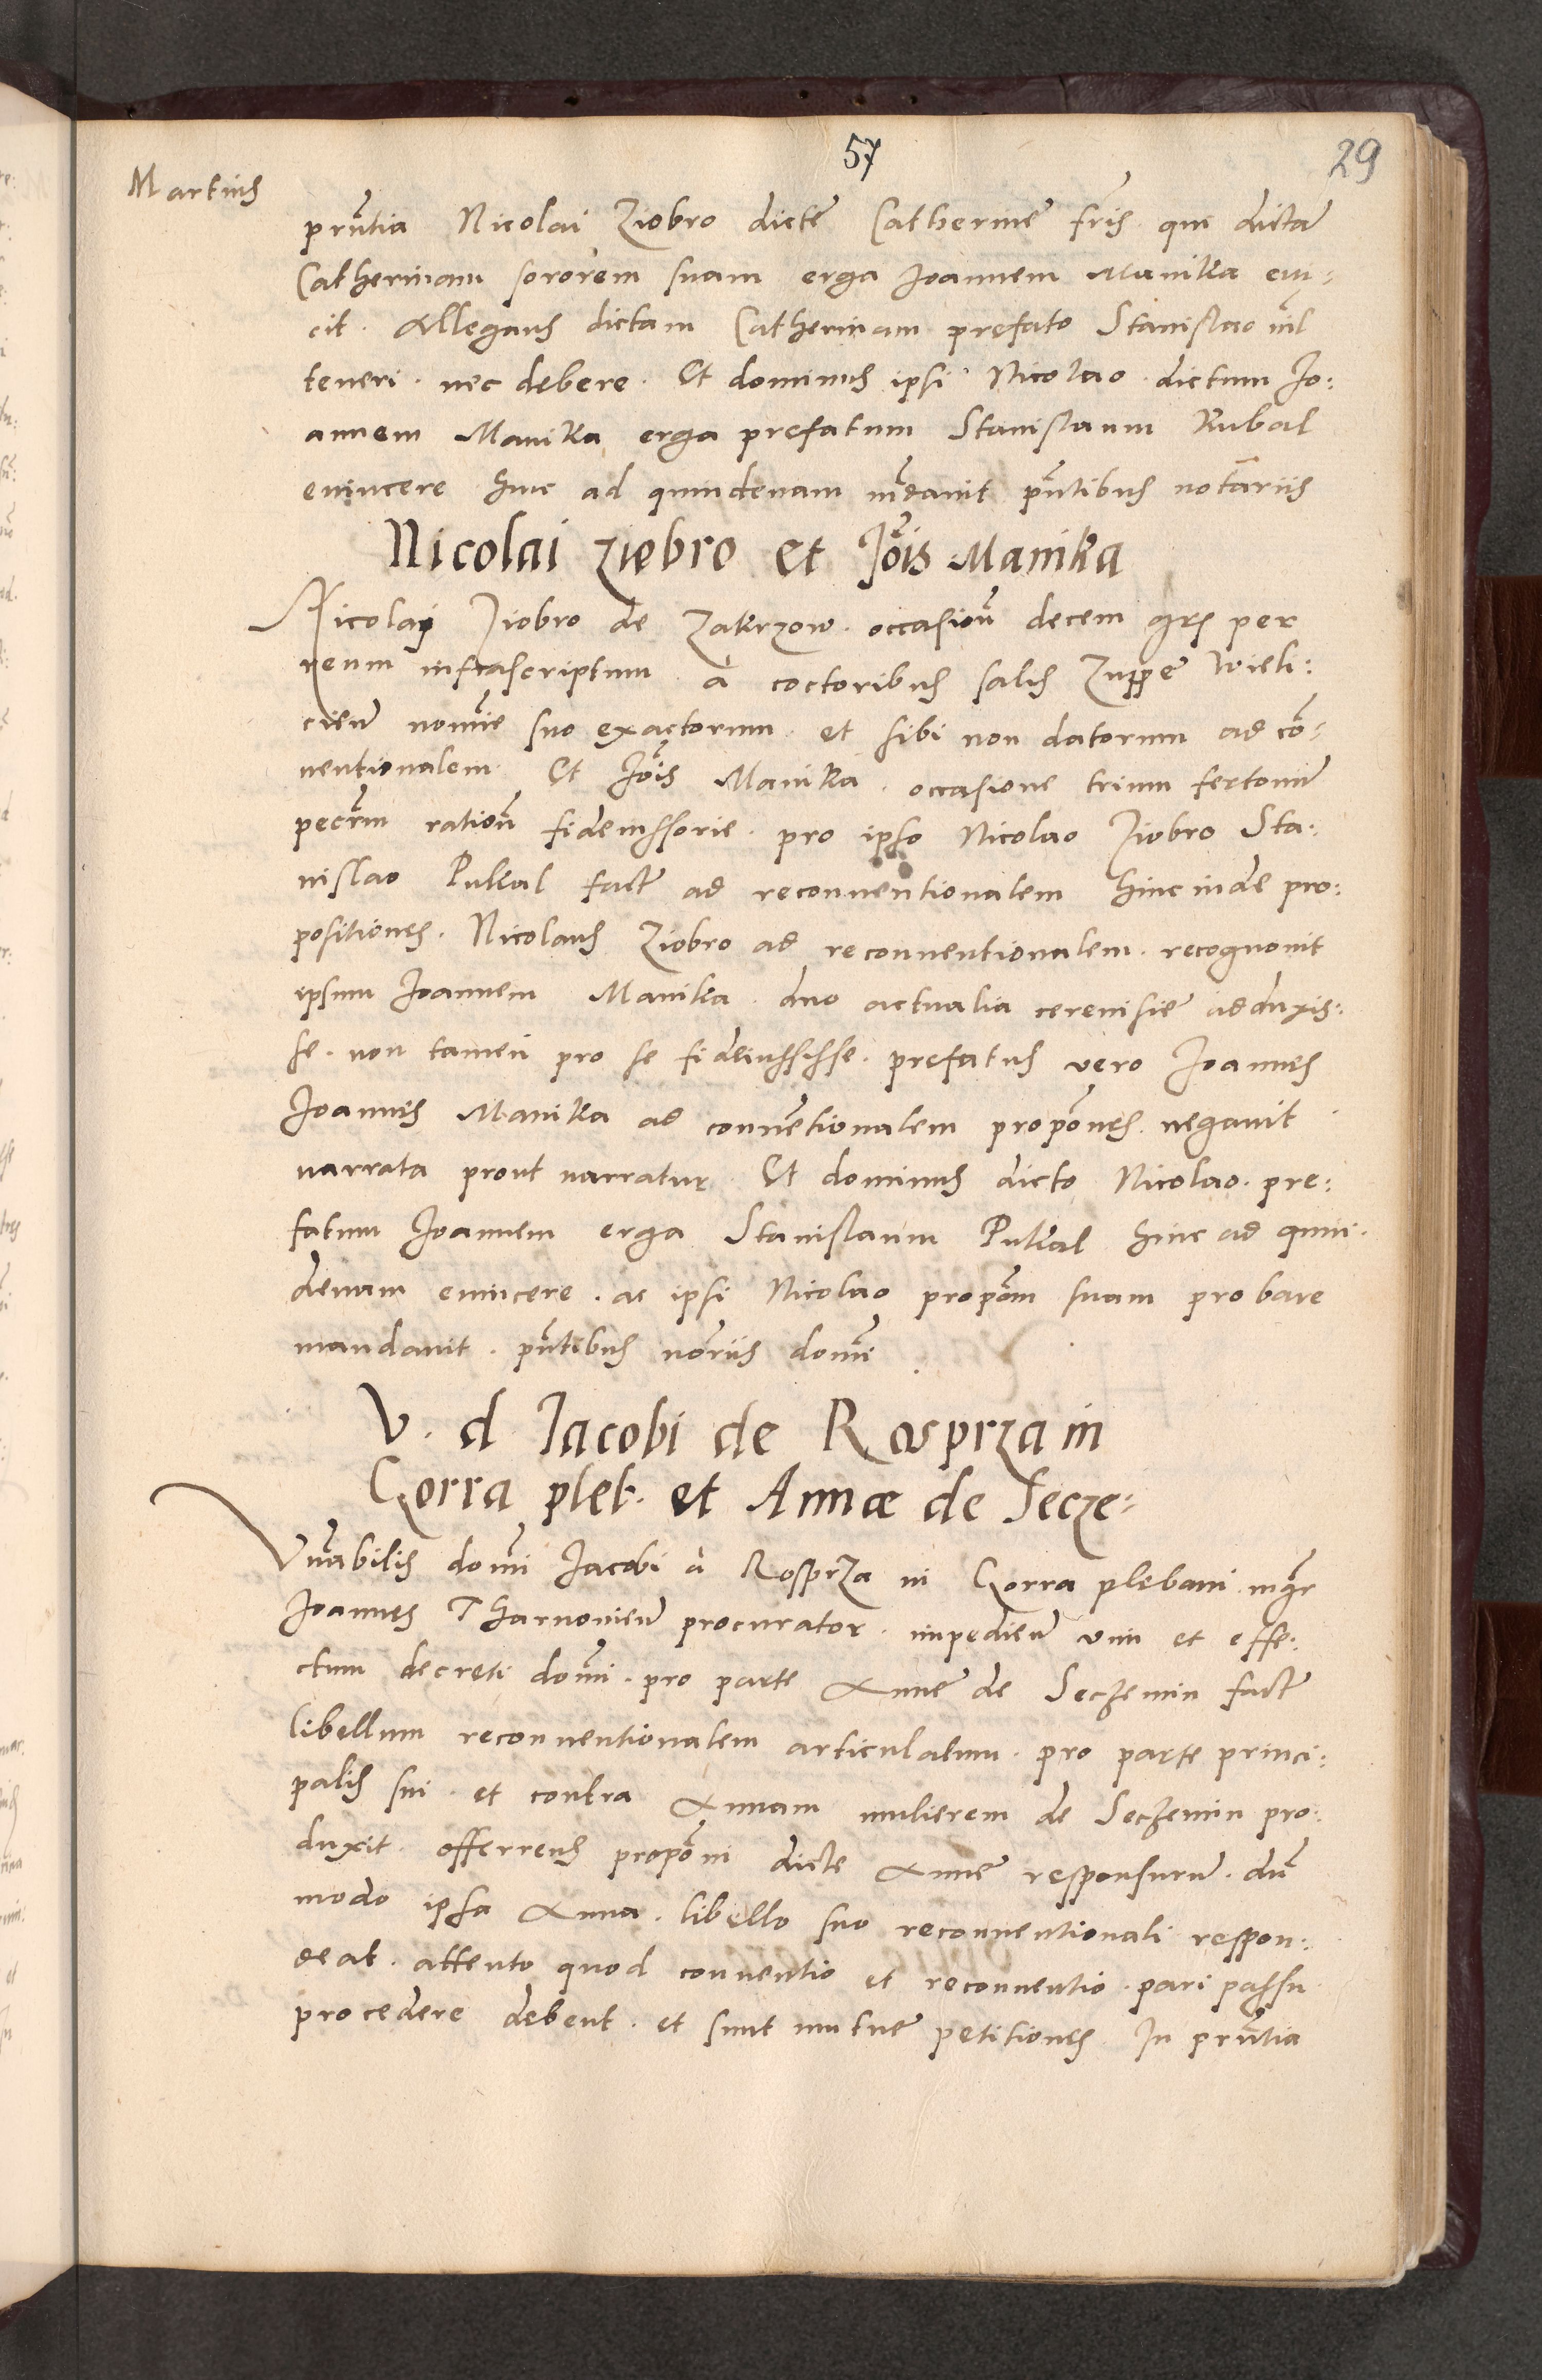 57
29
Martius
prñtia Nicolai Ziobro dictę Catherinę fris qui dictā
Catherinam sororem suam erga Joannem Manika evi-
cit. Allegans dictam Catherinam prefato Stanislao nil
teneri. nec debere. Et dominus ipsi Nicolao dictum Jo:
annem Manika erga prefatum Stanislaum Kubal
evincere hinc ad quindenam mãdavit pñtibus notariis
Nicolai Ziebro et Jois Manika
Nicolaj Ziobro de Zakrzow. occasioñ decem grs per
reum infrascriptum à coctoribus salis Zuppę Wieli:
cieñ nomie suo exactorum et sibi non datorum ad cõ-
ventionalem Et Jois Manika. occasione trium fertonũ
pecũm rationñ fideiussorie. pro ipso Nicolao Ziobro Sta:
nislao Pukal factę ad reconventionalem hincinde pro:
positiones. Nicolaus Ziobro ad reconventionalem. recognovit
ipsum Joannem Manika duo actualia cerevisię adduxis:
se. non tamen pro se fideiussisse. prefatus vero Joannes
Joannes Manika ad convẽtionalem propõnes. negavit
narrata prout narratur Et dominus dicto Nicolao. pre:
fatum Joannem erga Stanislaum Pukal hinc ad quin:
denam evincere. ac ipsi Nicolao propõm suam probare
mandavit. pñtibus noriis domi
V. d Jacobi de Rosprza in
Gorra pleb. et Annæ de Secze-
Vñabilis domi Jacobi à Rosprza in Gorra plebani mgr
Joannes Tharnovieñ procurator. impedieñ vim et effe:
ctum decreti domi. pro parte Annę de Seczemin factę
libellum reconventionalem articulatum. pro parte princi:
palis sui. et contra Annam mulierem de Seczemin pro:
duxit. offerrens propõni dicte Annę responsurũ. dũ
modo ipsa Anna. libello suo reconventionali respon:
deat. attento quod conventio et reconventio. pari passu
procedere debent. et sunt mutuę petitiones In prñtia